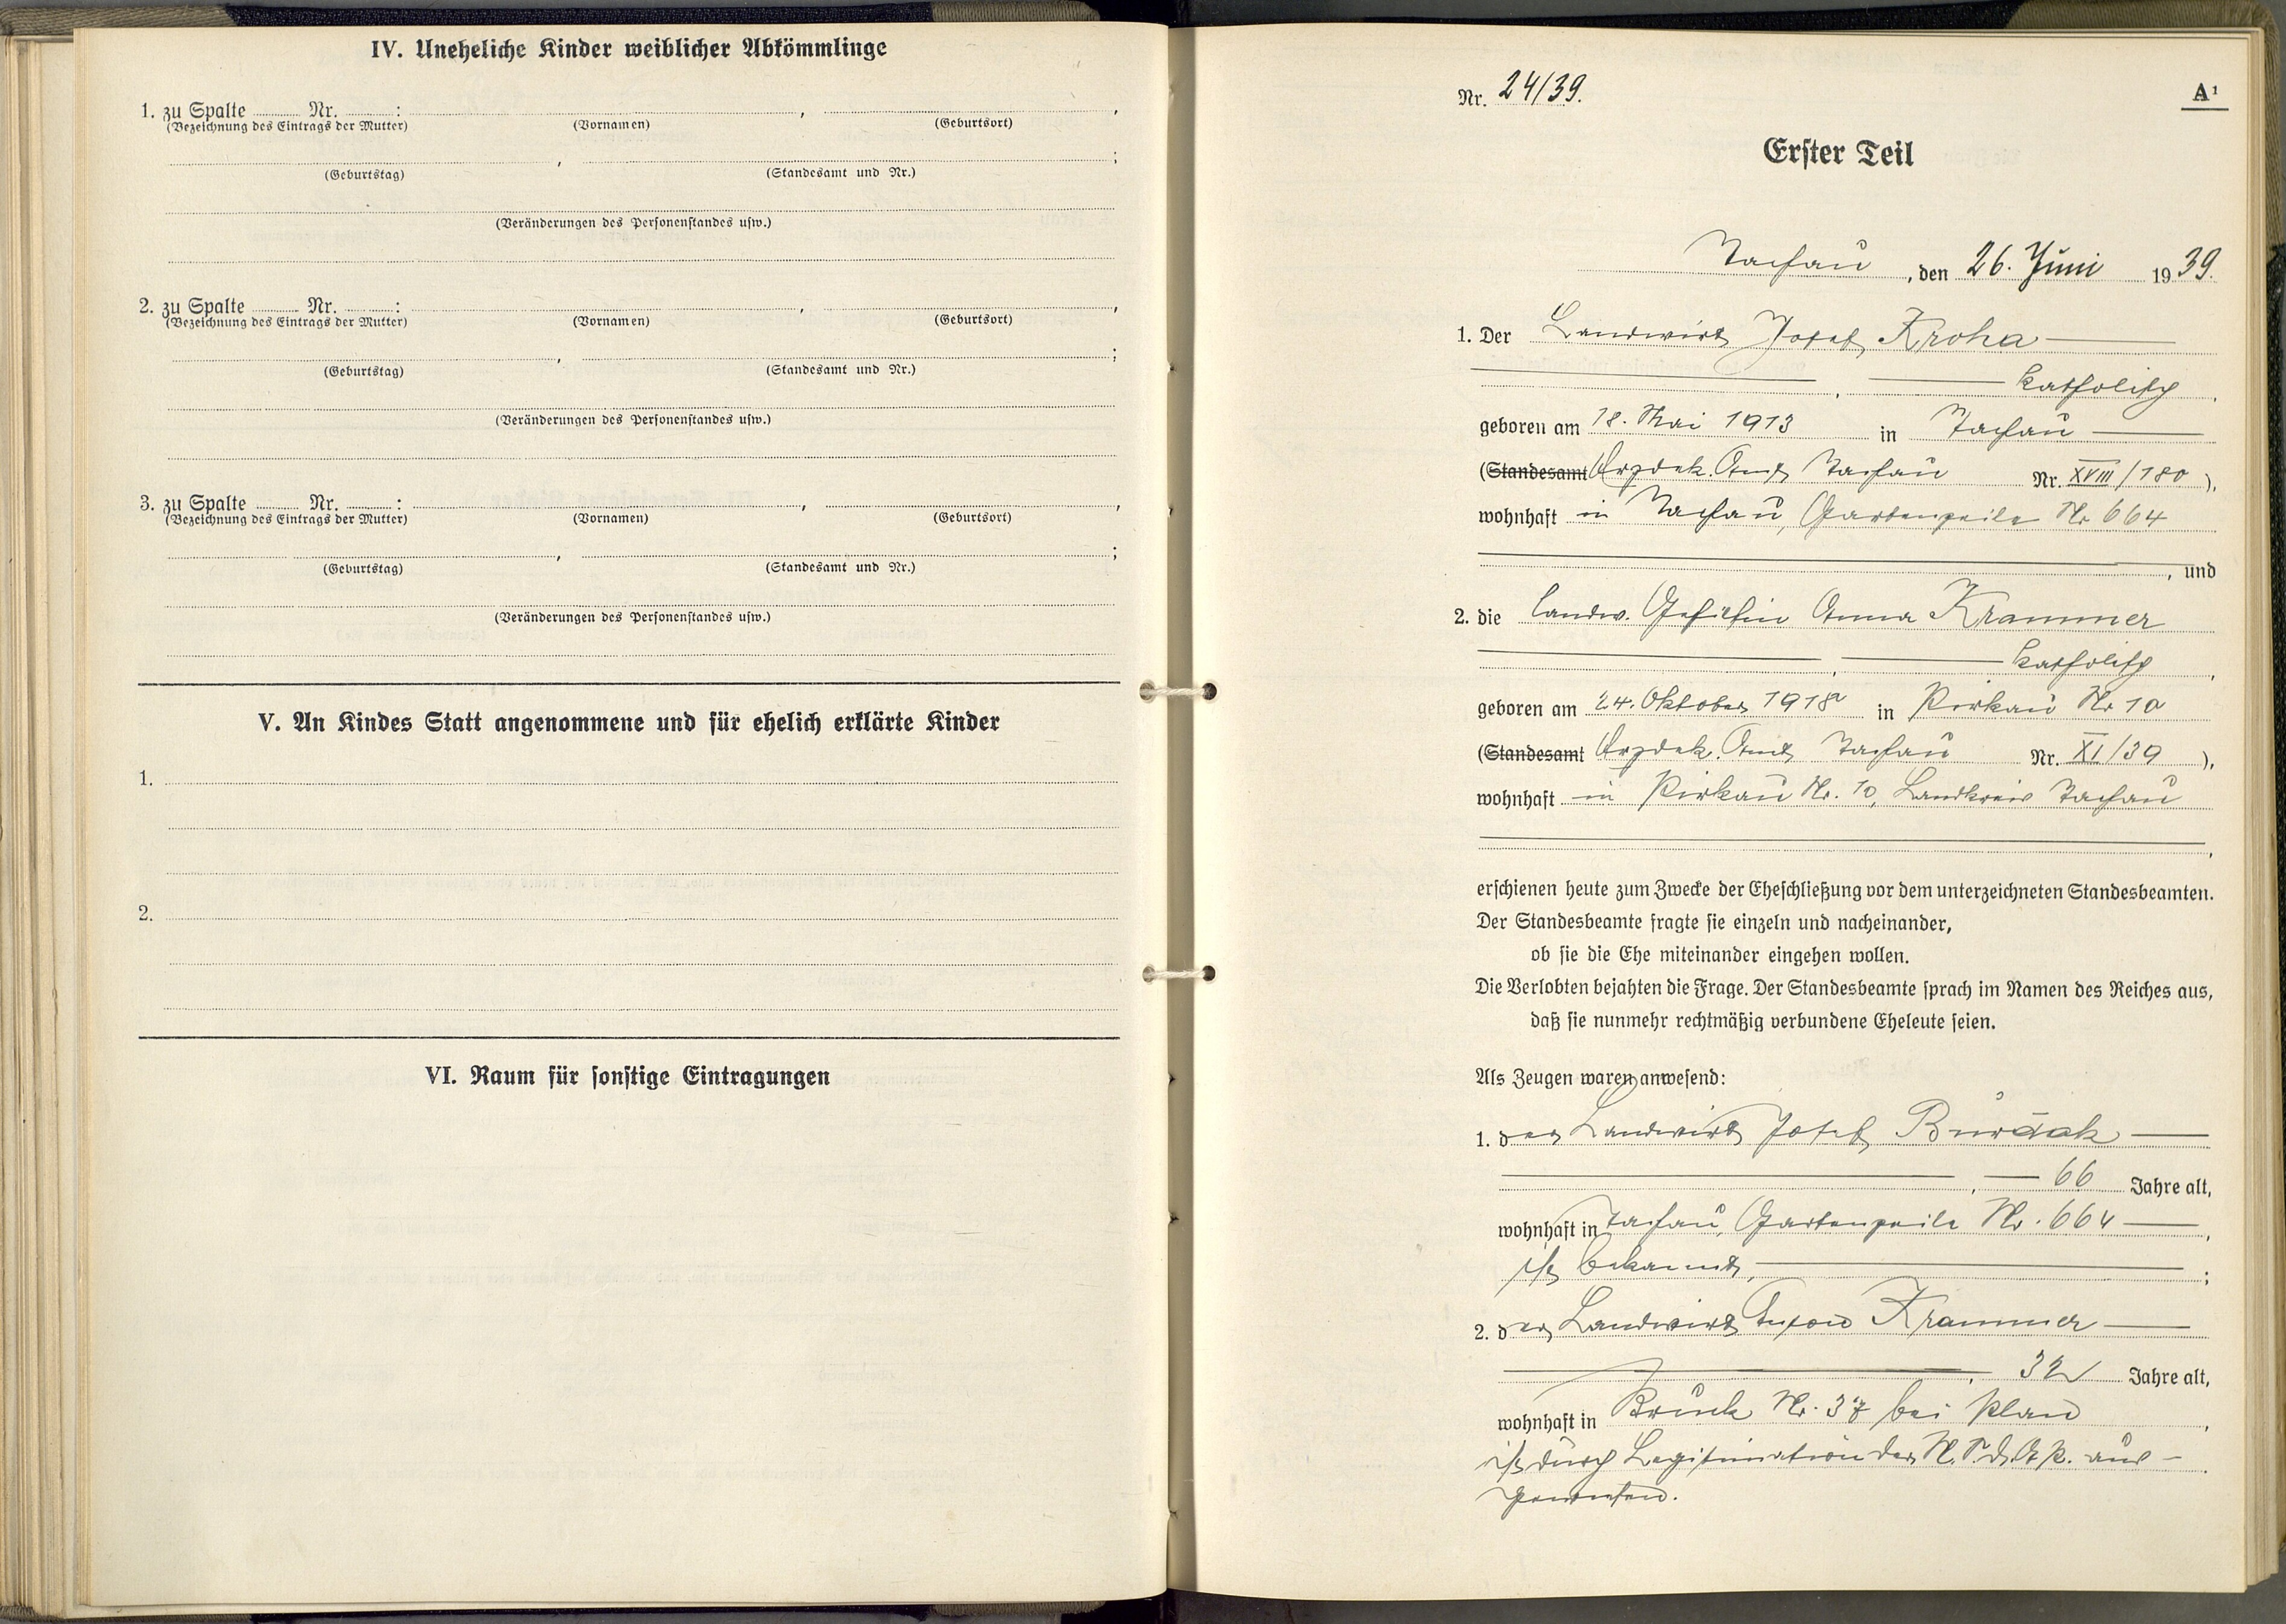 IV. Uneheliche Kinder weiblicher Abkömmlinge
1. zu Spalte ........ Nr. ........:
(Bezeichnung des Eintrags der Mutter) (Vornamen) (Geburtsort)
(Geburtstag) (Standesamt und Nr.)
(Veränderungen des Personenstandes usw.)
2. zu Spalte ........ Nr. ........:
(Bezeichnung des Eintrags der Mutter) (Vornamen) (Geburtsort)
(Geburtstag) (Standesamt und Nr.)
(Veränderungen des Personenstandes usw.)
3. zu Spalte ........ Nr. ........:
(Bezeichnung des Eintrags der Mutter) (Vornamen) (Geburtsort)
(Geburtstag) (Standesamt und Nr.)
(Veränderungen des Personenstandes usw.)
V. An Kindes Statt angenommene und für ehelich erklärte Kinder
1.
2.
VI. Raum für sonstige Eintragungen
Nr. 24/39.
A¹
Erster Teil
Tachau, den 26. Juni 1939.
1. Der Landwirt Josef Kroha
katholisch,
geboren am 18. Mai 1913 in Tachau
(Standesamt Erzdek. Amt Tachau Nr. XVIII/180),
wohnhaft in Tachau, Gartenzeile Nr 664
, und
2. die landw. Gehilfin Anna Krammer
katholisch,
geboren am 24. Oktober 1918 in Pirkau Nr 10
(Standesamt Erzdek. Amt Tachau Nr. XI/39),
wohnhaft in Pirkau Nr. 10, Landkreis Tachau
,
erschienen heute zum Zwecke der Eheschließung vor dem unterzeichneten Standesbeamten.
Der Standesbeamte fragte sie einzeln und nacheinander,
ob sie die Ehe miteinander eingehen wollen.
Die Verlobten bejahten die Frage. Der Standesbeamte sprach im Namen des Reiches aus,
daß sie nunmehr rechtmäßig verbundene Eheleute seien.
Als Zeugen waren anwesend:
1. der Landwirt Josef
, 66 Jahre alt,
wohnhaft in Tachau, Gartenzeile Nr. 664,
ist bekannt,;
2. der Landwirt Anton Krammer
, 32 Jahre alt,
wohnhaft in Bruck Nr. 37 bei Plan,
ist durch Legitimation der N.S.D.A.P. aus-
gewiesen.